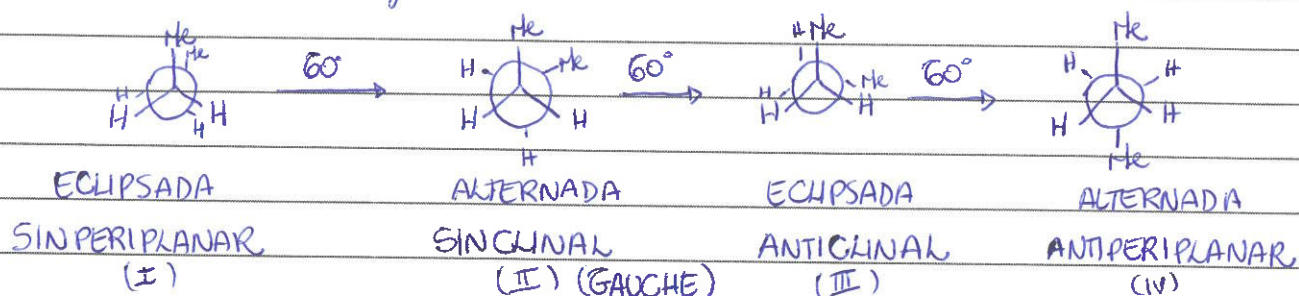 Me Me Me H Me Me
60° H Me 60° Me 60° H H
H H H H H H H H H H H
H H Me
ECLIPSADA ALTERNADA ECLIPSADA ALTERNADA
SINPERIPLANAR SINCLINAL ANTICLINAL ANTIPERIPLANAR
(I) (II) (GAUCHE) (III) (IV)